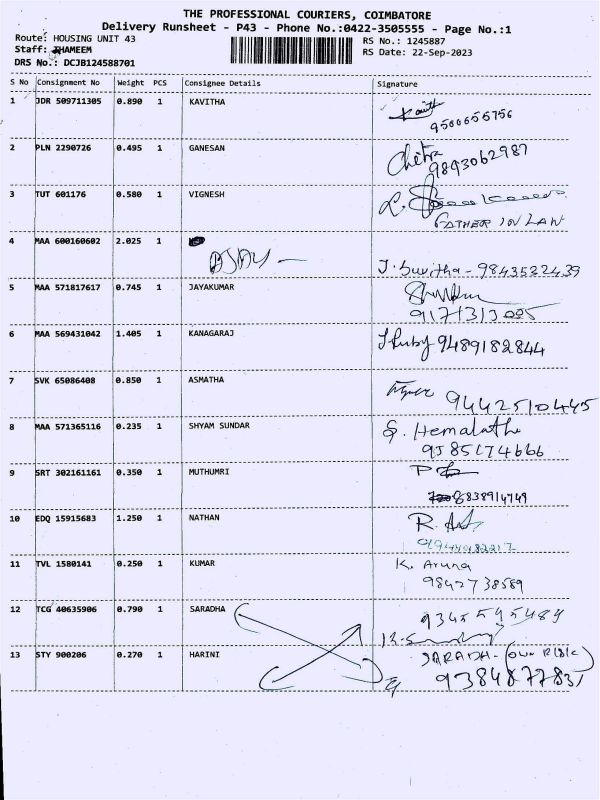 THE PROFESSIONAL COURIERS, COIMBATORE
Delivery Runsheet - P43 - Phone No.:0422-3505555 - Page No.:1
Route: HOUSING UNIT 43
RS No.: 1245887
Staff: JHAMEEM
RS Date: 22-Sep-2023
DRS No.: DCJB124588701
S No Consignment No Weight PCS Consignee Details Signature
1 JDR 509711305 0.890 1 KAVITHA
9500655756
2 PLN 2290726 0.495 1 GANESAN Chitra
9843062987
3 TUT 601176 0.580 1 VIGNESH
FATHER IN LAW
4 MAA 600160602 2.025 1
J. Suvitha - 9843522439
5 MAA 571817617 0.745 1 JAYAKUMAR
9171313005
6 MAA 569431042 1.405 1 KANAGARAJ J Ruby 9489182844
7 SVK 65086408 0.850 1 ASMATHA
9442510445
8 MAA 571365116 0.235 1 SHYAM SUNDAR S. Hemalatha
9585174666
9 SRT 302161161 0.350 1 MUTHUMRI
8838914749
10 EDQ 15915683 1.250 1 NATHAN
11 TVL 1580141 0.250 1 KUMAR K. Aruna
9842738589
12 TCG 40635906 0.790 1 SARADHA
9345545489
13 STY 900206 0.270 1 HARINI SARADH-
9384877831